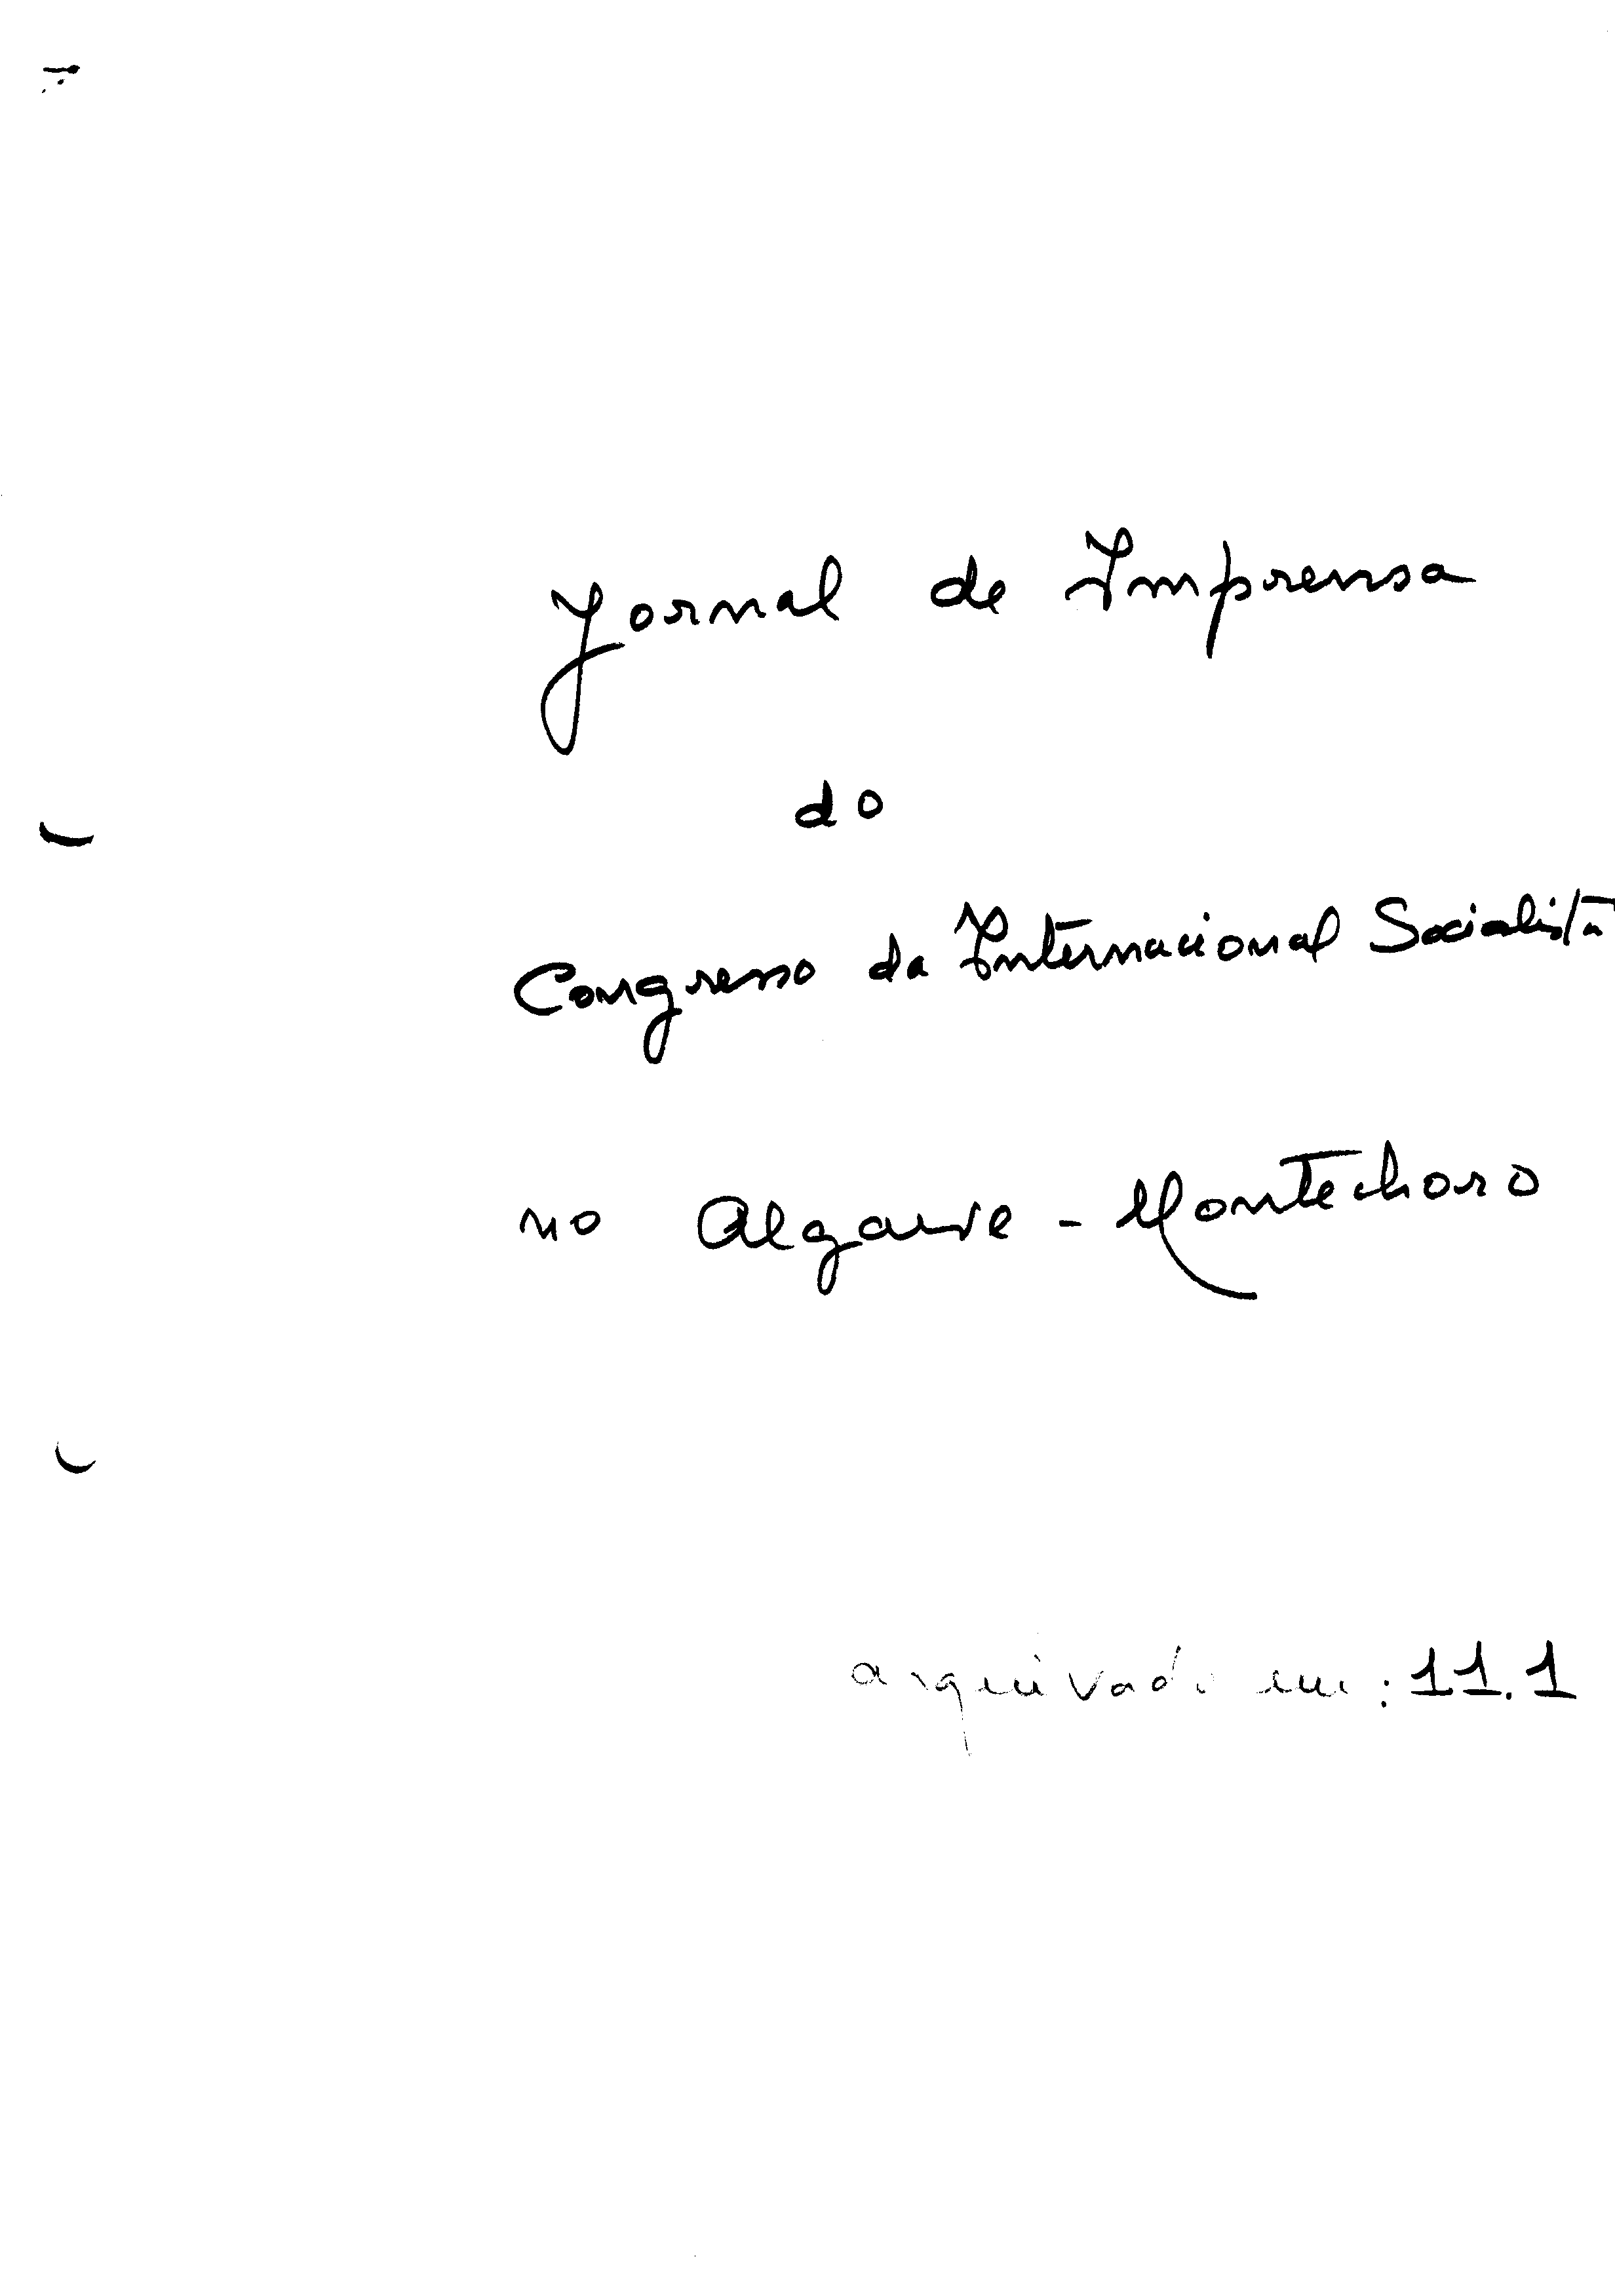 Jornal de Imprensa
do
Congresso da Internacional Socialista
no Algarve - Montechoro
arquivado em: 11.1